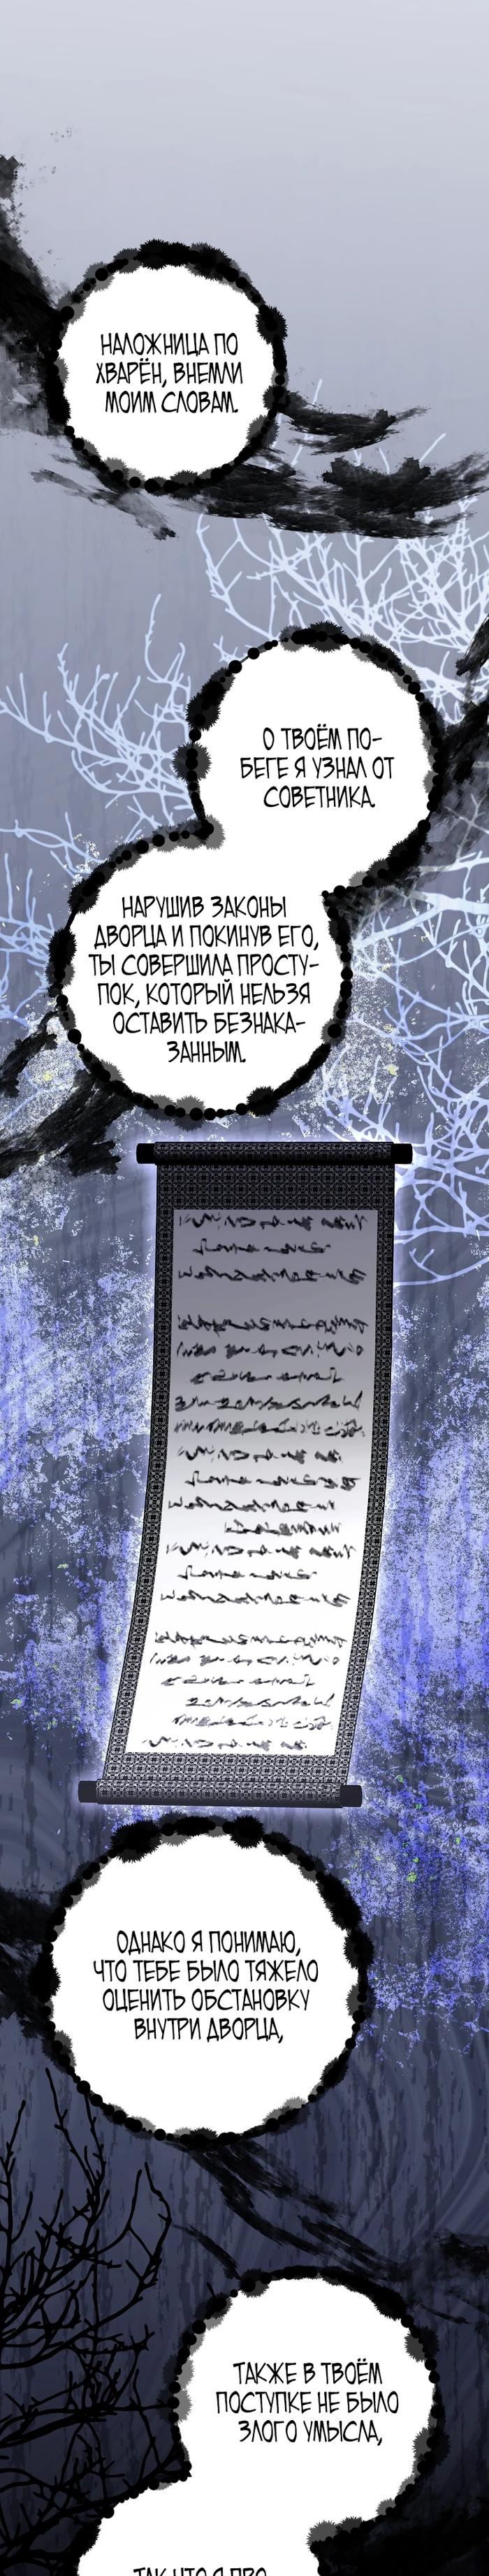 НАЛОЖНИЦА ПО
ХВАРЁН, ВНЕМЛИ
МОИМ СЛОВАМ.
О ТВОЁМ ПО-
БЕГЕ Я УЗНАЛ ОТ
СОВЕТНИКА.
НАРУШИВ ЗАКОНЫ
ДВОРЦА И ПОКИНУВ ЕГО,
ТЫ СОВЕРШИЛА ПРОСТУ-
ПОК, КОТОРЫЙ НЕЛЬЗЯ
ОСТАВИТЬ БЕЗНАКА-
ЗАННЫМ.
ОДНАКО Я ПОНИМАЮ,
ЧТО ТЕБЕ БЫЛО ТЯЖЕЛО
ОЦЕНИТЬ ОБСТАНОВКУ
ВНУТРИ ДВОРЦА,
ТАКЖЕ В ТВОЁМ
ПОСТУПКЕ НЕ БЫЛО
ЗЛОГО УМЫСЛА,
ТАК ЧТО Я ПРО-